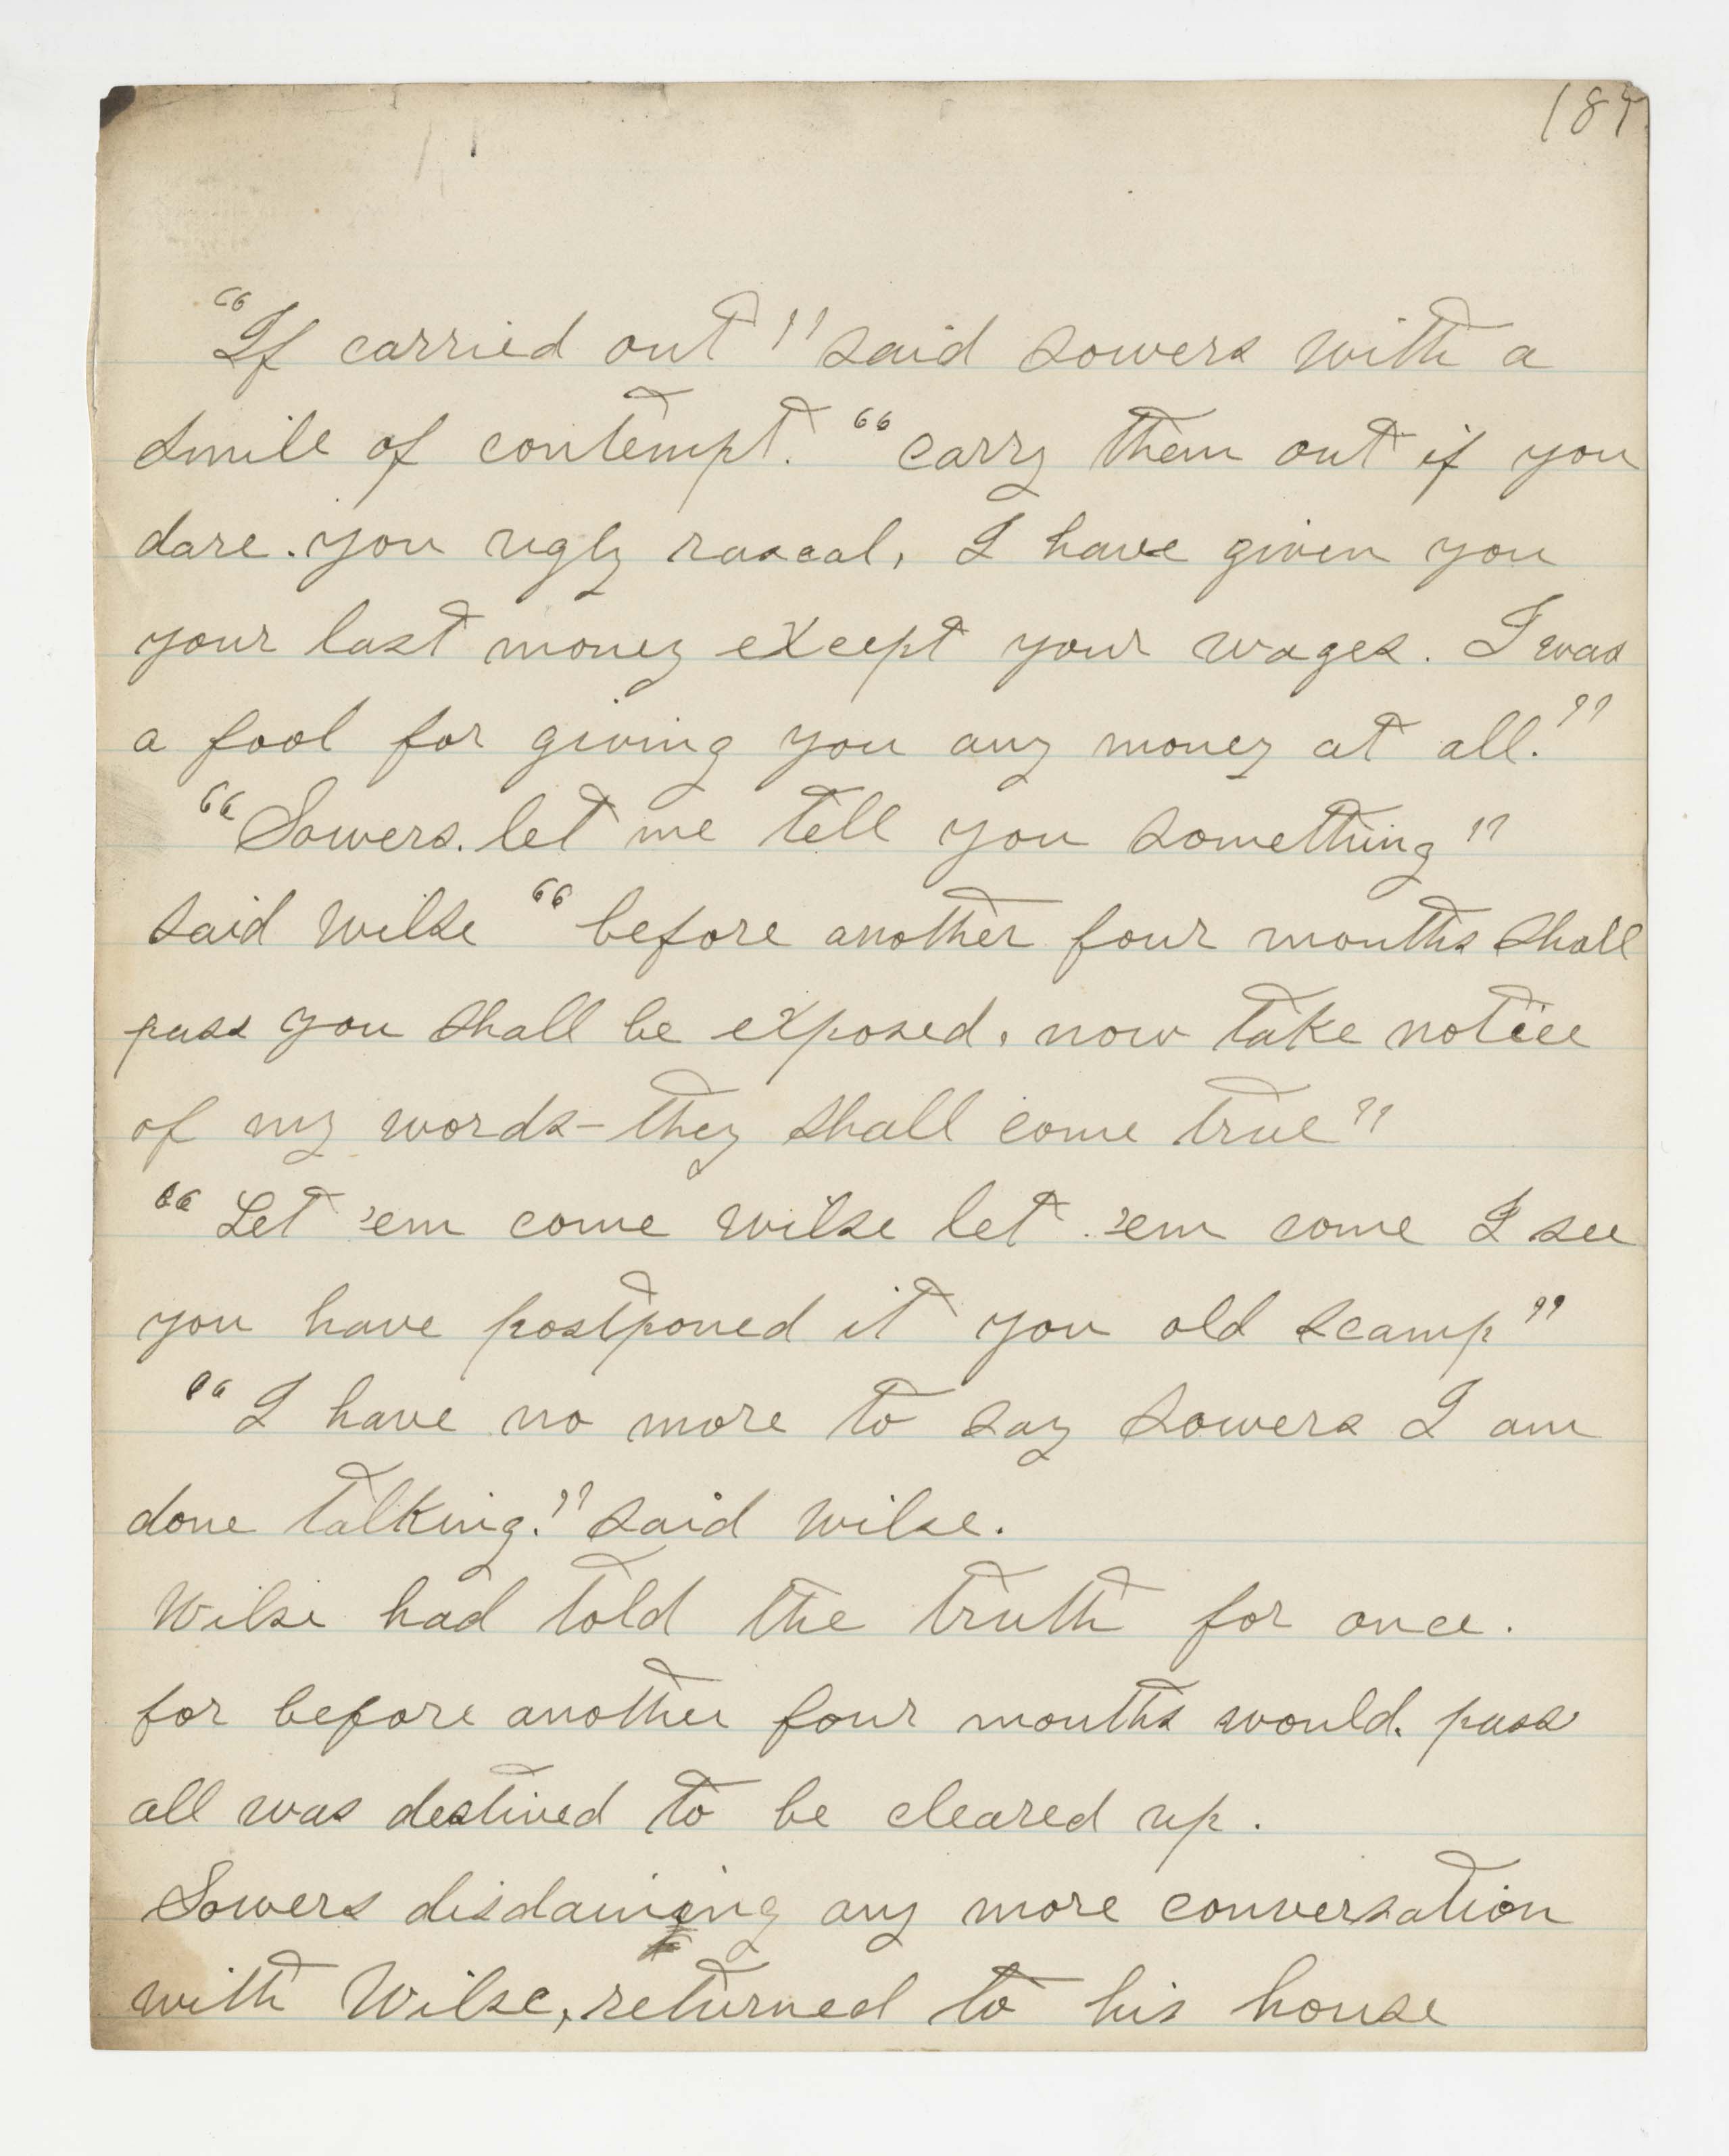 "If carried out" said Sowers with a
smile of contempt. "carry them out if you
dare. you ugly rascal, I have given you
your last money except your wages. I was
a fool for giving you any money at all."
"Sowers. let me tell you something"
said Wilse "before another four months shall
pass you shall be exposed, now take notice
of my words - they shall come true"
"Let 'em come Wilse let 'em come I see
you have postponed it you old scamp"
"I have no more to say Sowers I am
done talking." said Wilse.
Wilse had told the truth for once.
for before another four months would. pass
all was destined to be cleared up.
Sowers disdaining any more conversation
with Wilse, returned to his house